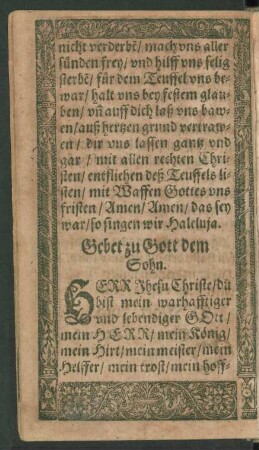 nicht verderbē/ mach vns aller
sünden frey/ vnd hilff vns selig
sterbē/ für dem Teuffel vns be-
war/ halt vns bey festem glau-
ben/ vñ auff dich laß vns baw-
en/ auß hertzen grund vertraw-
en/ dir vns lassen gantz vnd
gar/ mit allen rechten Chri-
sten/ entfliehen deß Teuffels li-
sten/ mit Waffen Gottes vns
fristen/ Amen/ Amen/ das sey
war/ so singen wir Haleluja.
Gebet zu Gott dem
Sohn.
HERR Jhesu Christe/ du
bist mein warhafftiger
vnd lebendiger GOtt/
mein HERR/ mein König/
mein Hirt/ mein meister/ mein
Helffer/ mein trost/ mein hoff-